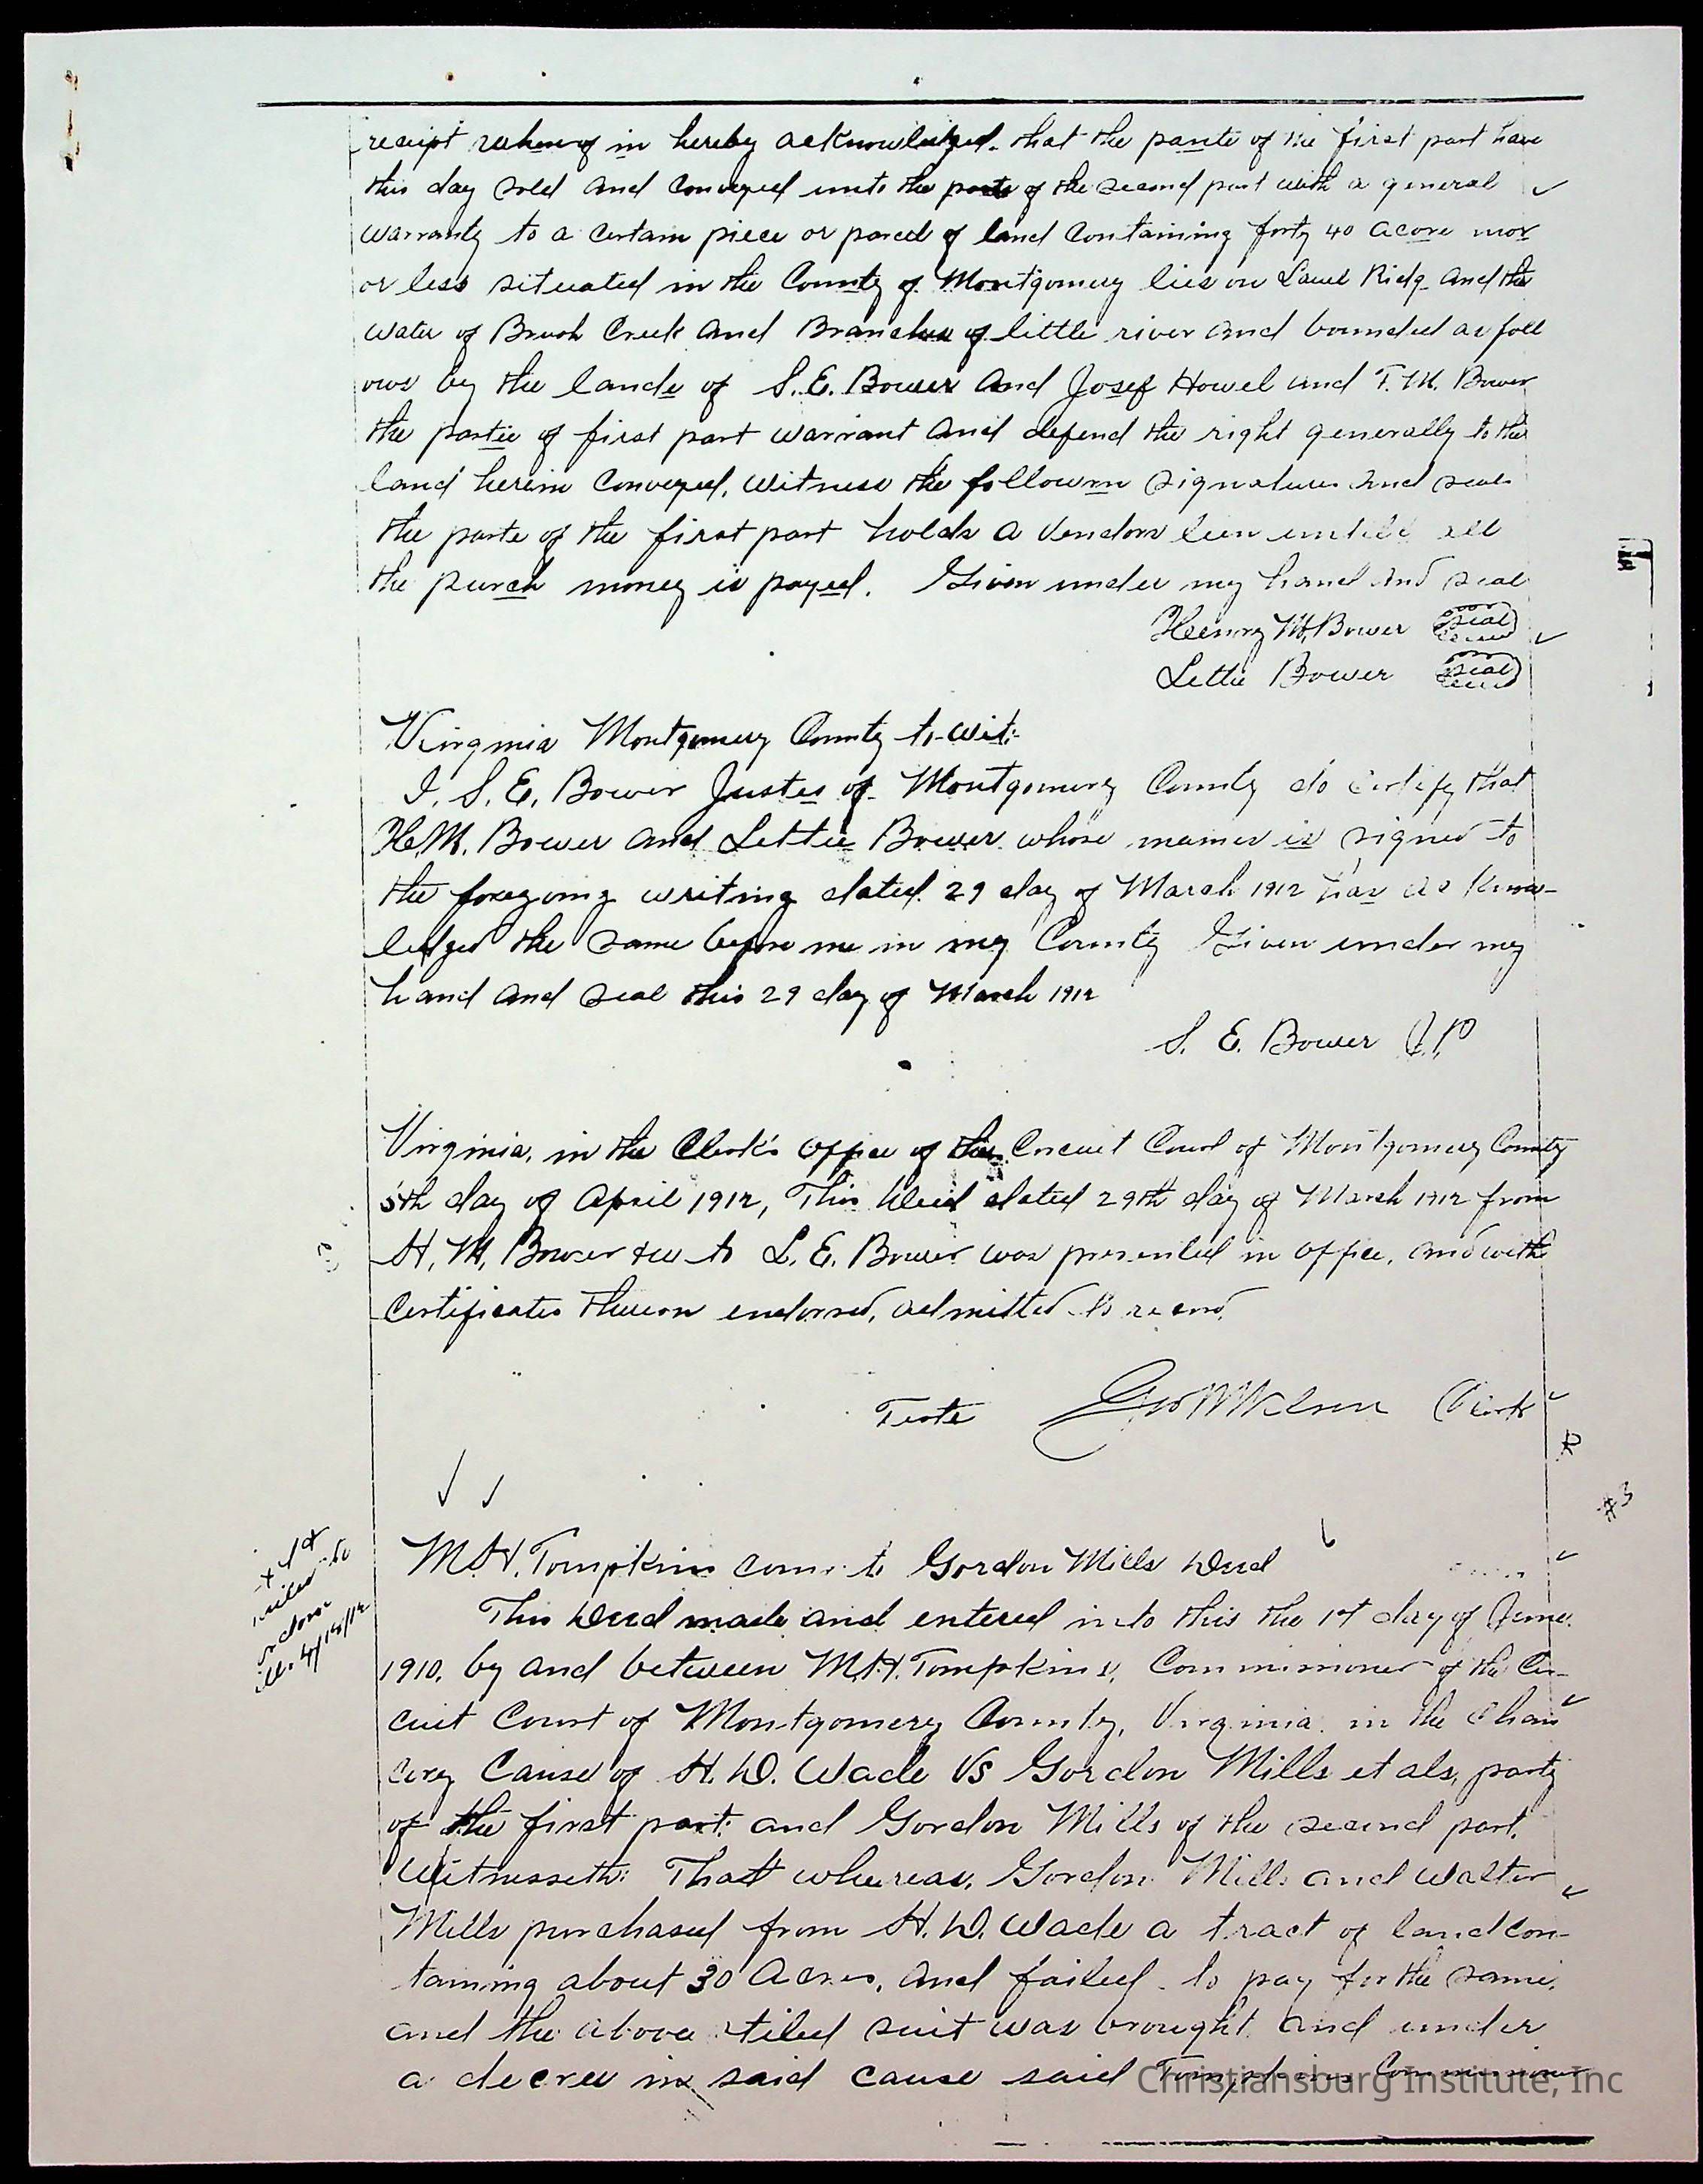 receipt whereof in hereby acknowledged. that the parite of the first part have
this day sold and conveyed unto the parte of the second part with a general
warranty to a certain piece or parcel of land containing forty 40 acore mor
or less situated in the County of Montgomery lies on Laurel Ridg and the
water of Brush Creek and Branches of little river and bounded as foll
ows by the lands of S. E. Bower and Josef Howel and T. M. Bower
the partie of first part warrant and defend the right generally to the
land herein conveyed, witness the followin signatures and seals
the parte of the first part holds a vendors lien untill all
the purch money is payed. Given under my hand and seal
Heenry M. Bower Seal
Lettie Bower Seal
Virginia Montgomery County to-wit:
I, S. E. Bower Justes of Montgomery County do certify that
H. M. Bower and Lettie Bower whose names is signed to
the foregoing writing dated 29 day of March 1912 has acknow-
ledged the same before me in my County Given under my
hand and seal this 29 day of March 1912
S. E. Bower J.P
Virginia, in the Clerk's office of the Circuit Court of Montgomery County
5th day of April 1912, This Deed dated 29th day of March 1912 from
H. M. Bower & w to L. E. Bower was presented in office, and with
certificates thereon endorsed, admitted to record.
Teste Geo W Wilson Clerk
#3
M. H. Tompkins comr. to Gordon Mills Deed
This Deed made and entered into this the 1st day of June.
1910, by and between M. H. Tompkins, Commissioner of the Cir-
cuit Court of Montgomery County, Virginia. in the Chan
cery Cause of H. D. Wade Vs Gordon Mills et als, party
of the first part: and Gordon Mills of the second part.
Witnesseth: That whereas, Gordon Mills and Walter
Mills purchased from H. D. Wade a tract of land con-
taining about 30 Acres, and failed to pay for the same,
and the above stiled suit was brought and under
a decree in said cause said Tompkins Commissioner
Christiansburg Institute, Inc